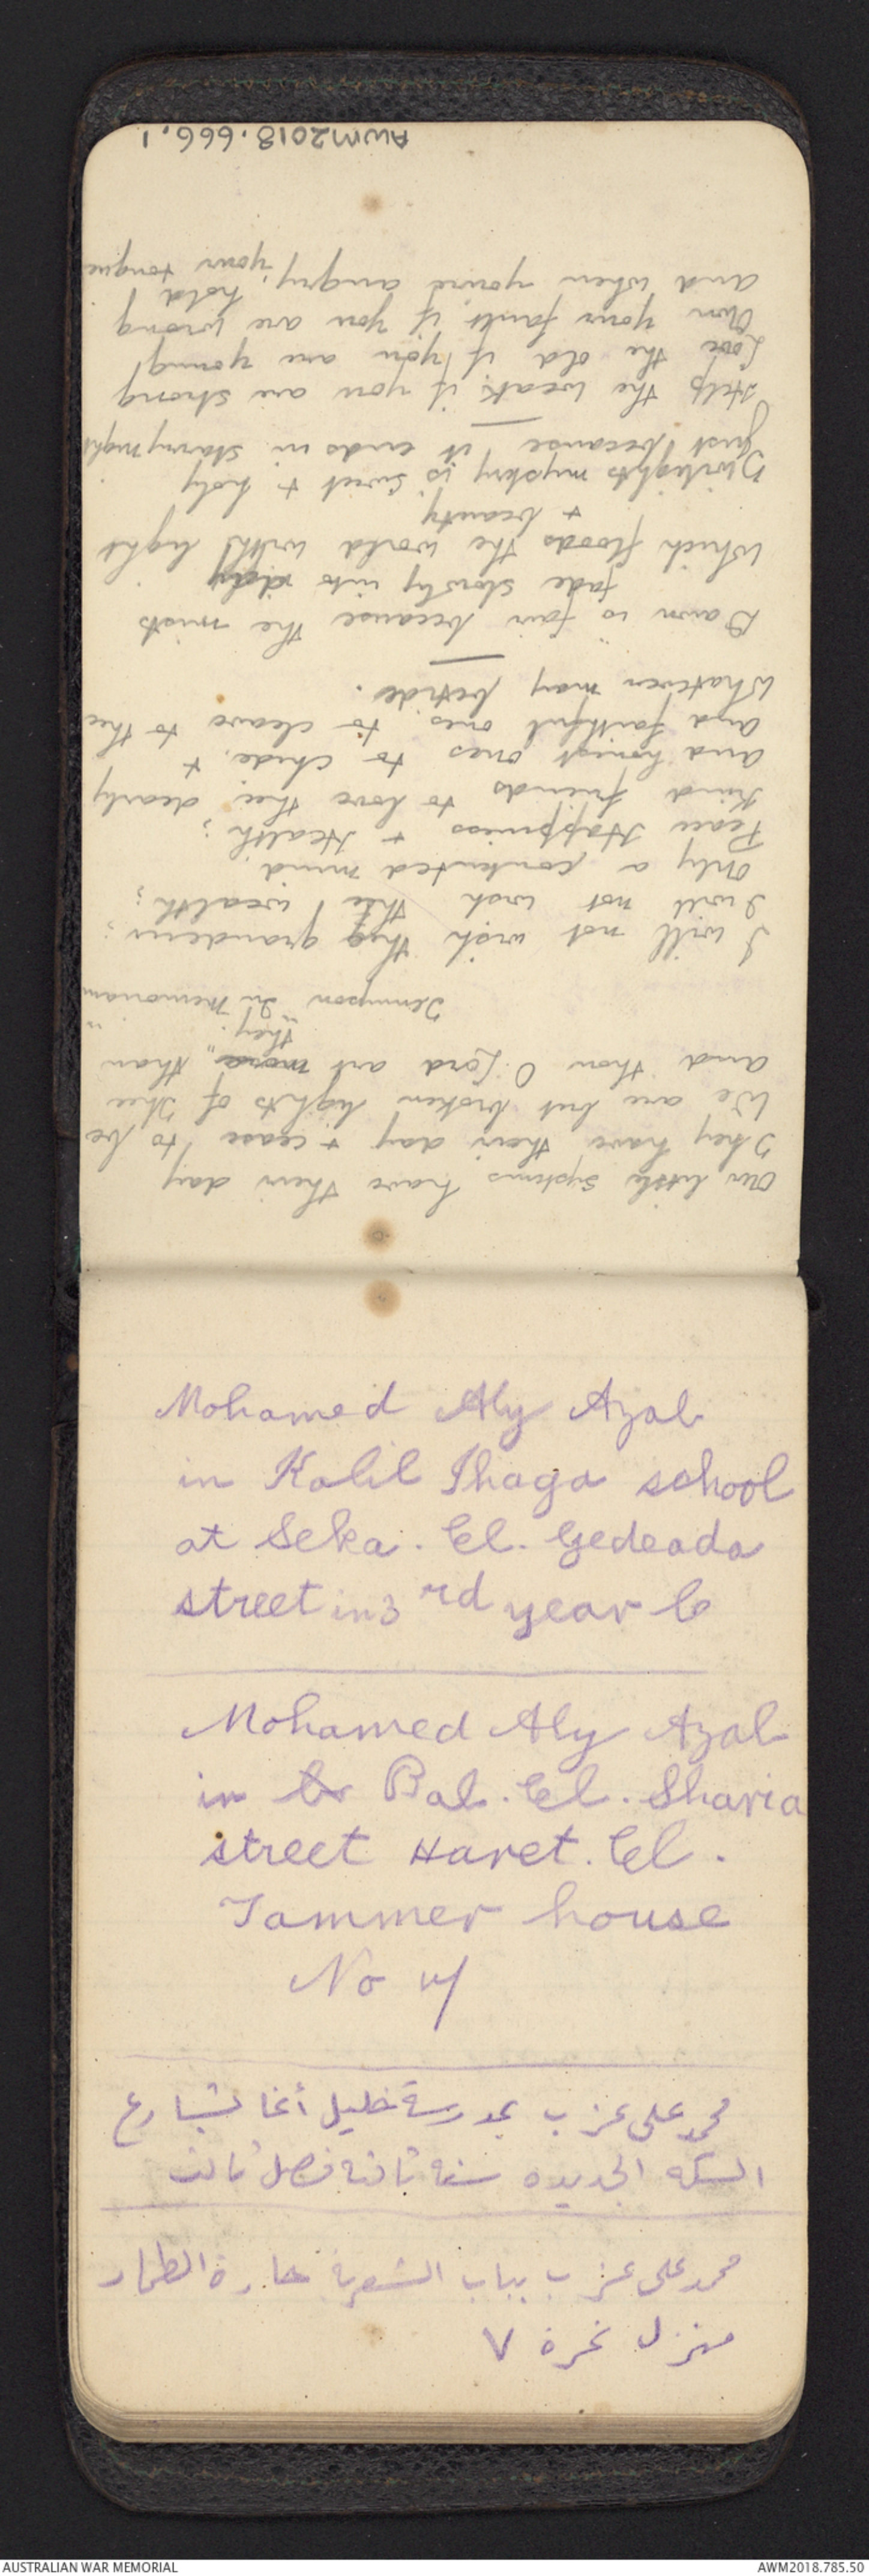 AWM2018.666.1
Our little systems have their day
They have their day + cease to be
We are but broken lights of Thee
and thou O. Lord art more than
"they."
Tennyson "In Memoriam
I will not wish thee grandeur;
I will not wish thee wealth;
Only a contented mind
Peace Happiness + Health;
Kind friends to love thee dearly
and honest ones to chide, +
and faithful ones to cleave to thee
Whatever may betide.
Dawn is fair because the mists
fade slowly into day
Which floods the world with light
+ beauty
Twilights mystery is sweet + holy
Just because it ends in starry night
Help the weak if you are strong
Love the old if you are young
Own your fault if you are wrong
and when you're angry, hold
your tongue
Mohamed Aly Azab
in Kalil Ihaga school
at Seka. El. Gedeada
street in 3rd year C
Mohamed Aly Azab
in Bab. El. Sharia
street Haret. El.
Tammer house
No
محمد على عزب بمدرسة خليل أغا بشارع
السكه الجديده سنة ثالثة فصل ثالث
محمد على عزب بباب الشعرية حارة الطمار
منزل نمرة ٧
AUSTRALIAN WAR MEMORIAL
AWM2018.785.50